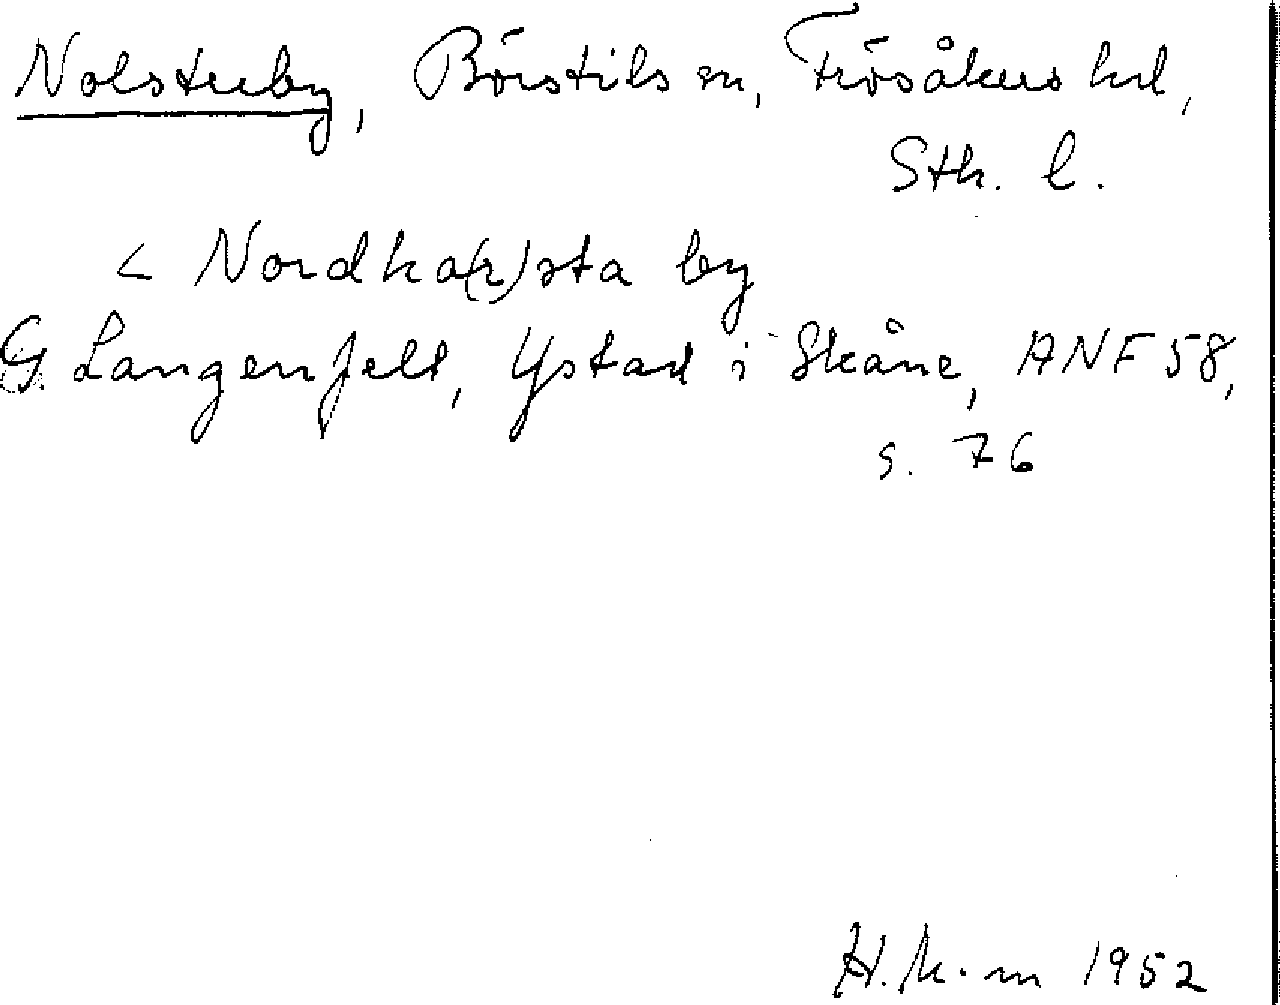 Nolsterby, Börstils sn, Frösåkers hd,
Sth. l.
< Nordka(r)sta by
G. Langenfelt, Ystad i Skåne, ANF 58,
s. 76
H. K-m 1952